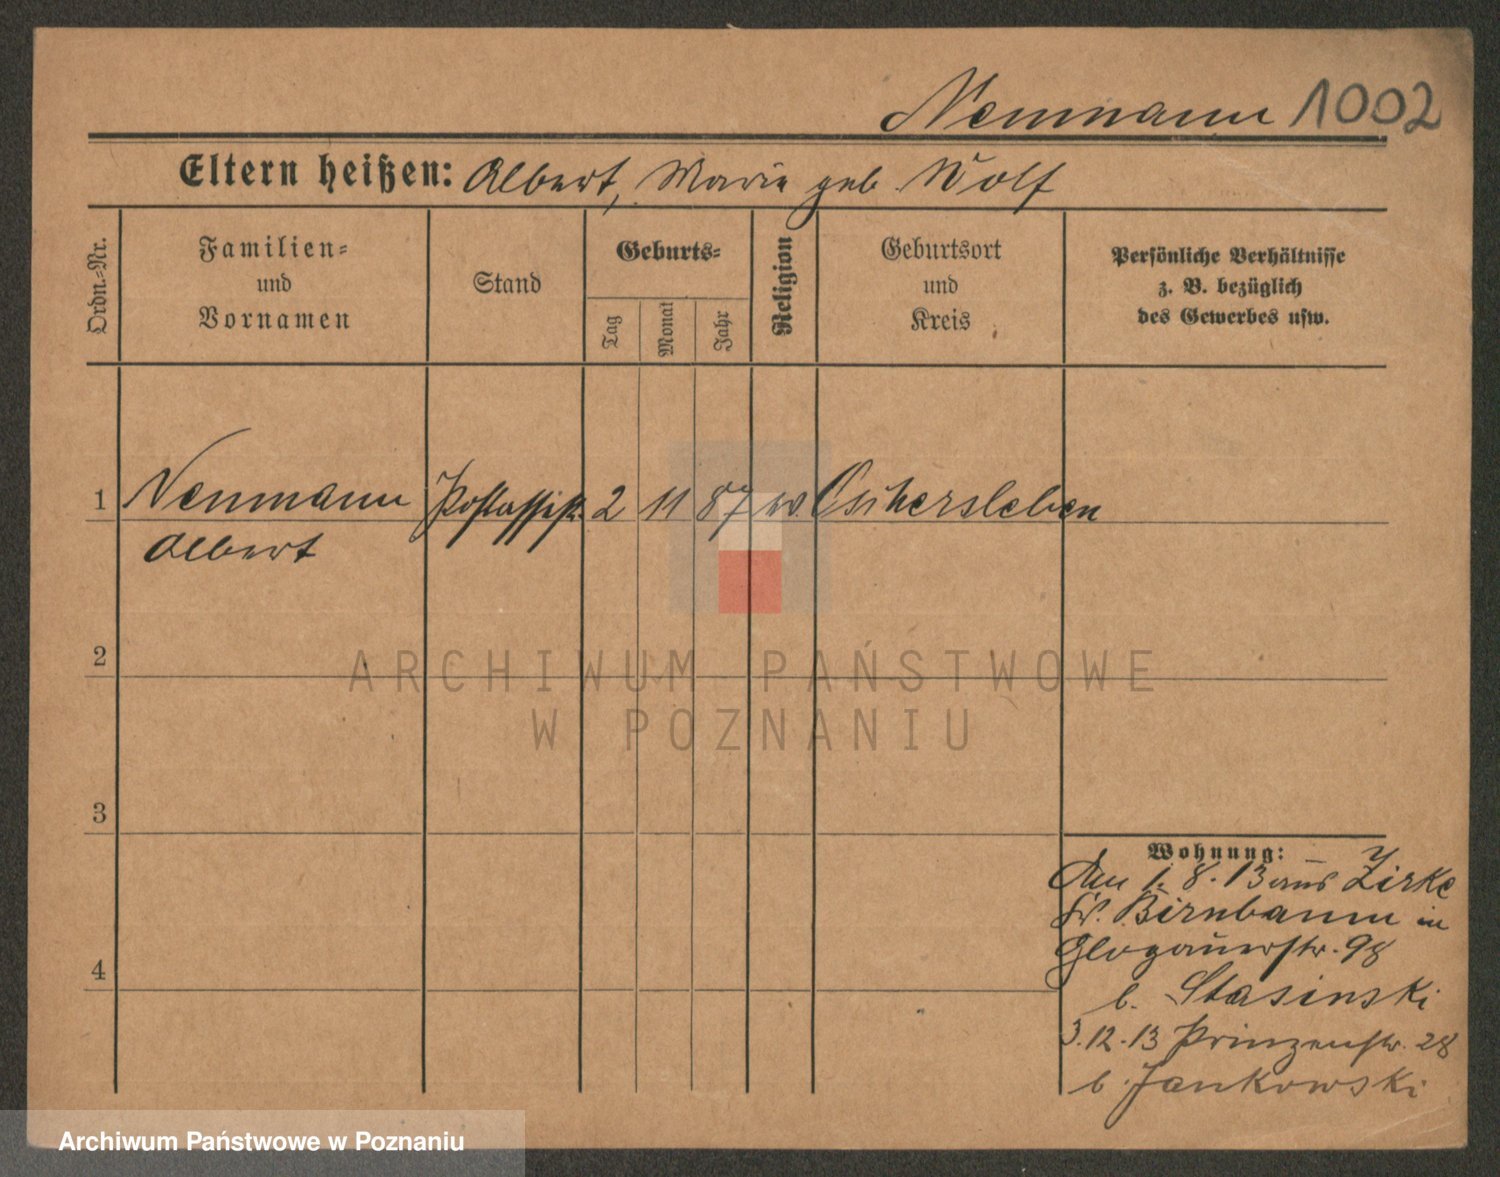 Neumann 1002
Eltern heißen: Albert, Marie geb. Wolf
Ordn.-Nr.
Familien-
und
Vornamen
Stand
Geburts-
Tag
Monat
Jahr
Religion
Geburtsort
und
Kreis
Persönliche Verhältnisse
z. B. bezüglich
des Gewerbes usw.
1 Neumann Postassist. 2 11 87 ev. Oschersleben
Albert
2
3
4
Wohnung:
Am 1. 8. 13 aus Zirke
Kr. Birnbaum in
Glogauerstr. 98
b. Stasinski
3.12.13 Prinzenstr. 28
b. Jankowski
ARCHIWUM PAŃSTWOWE
W POZNANIU
Archiwum Państwowe w Poznaniu